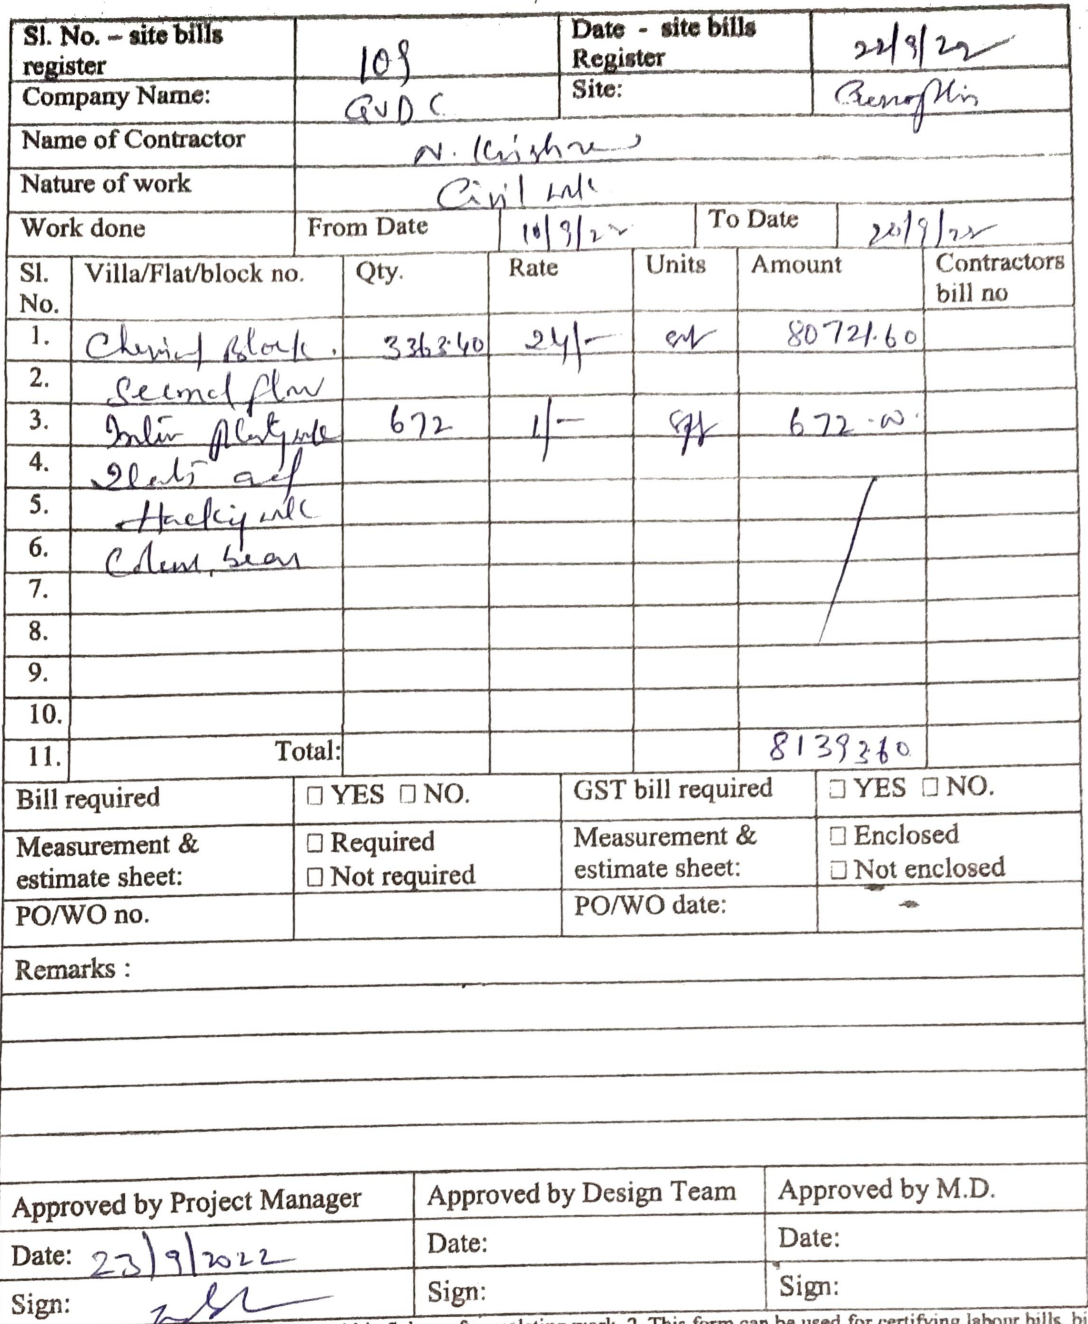 Sl. No. – site bills register 109 Date - site bills Register 22/9/22
Company Name: GVDC Site:
Name of Contractor N. Krishna
Nature of work Civil wk
Work done From Date 10/9/22 To Date 20/9/22
Sl. No. Villa/Flat/block no. Qty. Rate Units Amount Contractors bill no
1. Block. 3363.40 24/- sft 80721.60
2. Second floor
3. 672 1/- sft 672.00
4.
5. Hacking wk
6. beam
7.
8.
9.
10.
11. Total: 81393.60
Bill required □ YES □ NO. GST bill required □ YES □ NO.
Measurement & estimate sheet: □ Required □ Not required Measurement & estimate sheet: □ Enclosed □ Not enclosed
PO/WO no. PO/WO date: -
Remarks :
Approved by Project Manager Approved by Design Team Approved by M.D.
Date: 23/9/2022 Date: Date:
Sign: Sign: Sign:
2. This form can be used for certifying labour bills,